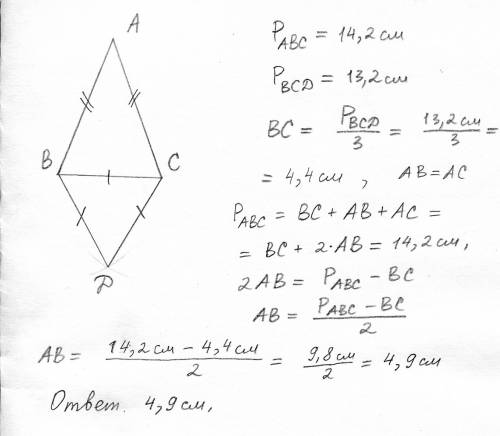 A
B
C
D
P_ABC = 14,2 см
P_BCD = 13,2 см
BC = P_BCD/3 = 13,2 см/3 =
= 4,4 см , AB = AC
P_ABC = BC + AB + AC =
= BC + 2·AB = 14,2 см,
2AB = P_ABC − BC
AB = P_ABC − BC/2
AB = 14,2 см − 4,4 см/2 = 9,8 см/2 = 4,9 см
Ответ. 4,9 см,